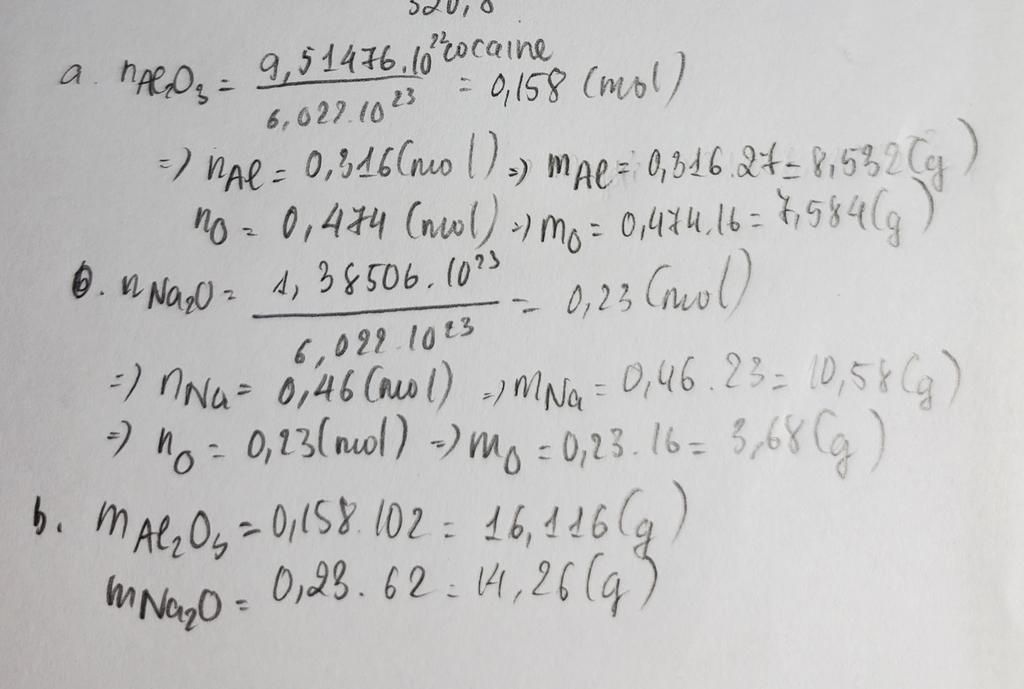 320,8
a. nAl₂O₃ = 9,51476.10²² cocaine / 6,022.10²³ = 0,158 (mol)
=) nAl = 0,316(mol) =) mAl = 0,316.27 = 8,532(g)
nO = 0,474 (mol) =) mO = 0,474.16 = 7,584(g)
b. nNa₂O = 1,38506.10²³ / 6,022.10²³ = 0,23 (mol)
=) nNa = 0,46(mol) =) mNa = 0,46.23 = 10,58(g)
=) nO = 0,23(mol) =) mO = 0,23.16 = 3,68(g)
b. mAl₂O₃ = 0,158.102 = 16,116(g)
mNa₂O = 0,23.62 = 14,26(g)